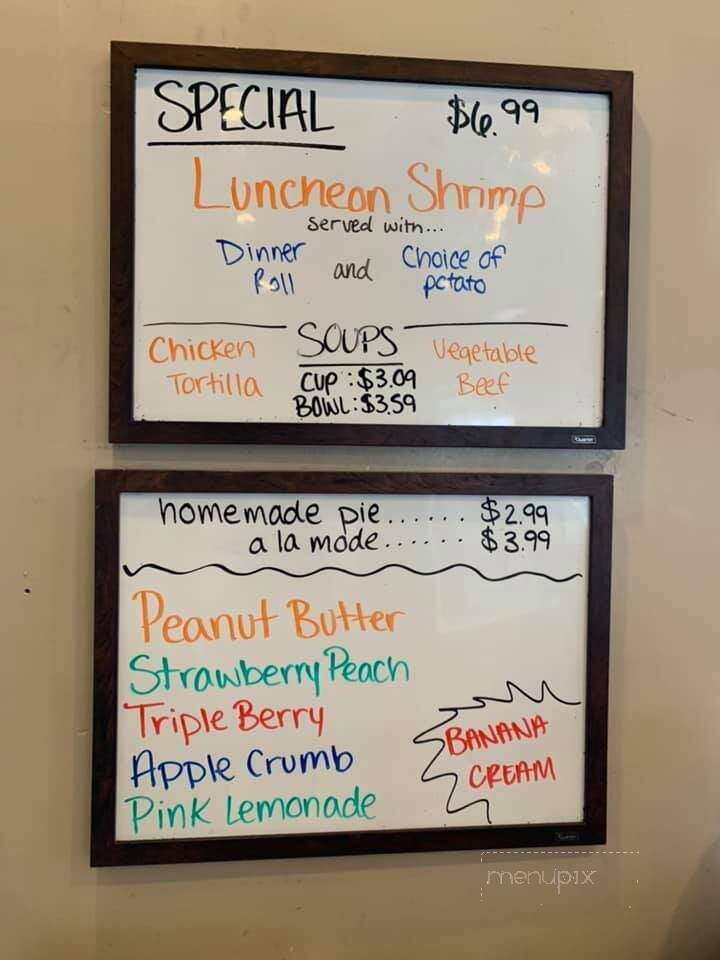 SPECIAL $6.99
Luncheon Shrimp
served with...
Dinner Roll and Choice of potato
SOUPS
Chicken Tortilla
CUP: $3.09
BOWL: $3.59
Vegetable Beef
homemade pie...... $2.99
a la mode...... $3.99
Peanut Butter
Strawberry Peach
Triple Berry
Apple Crumb
Pink Lemonade
BANANA
CREAM
menupix